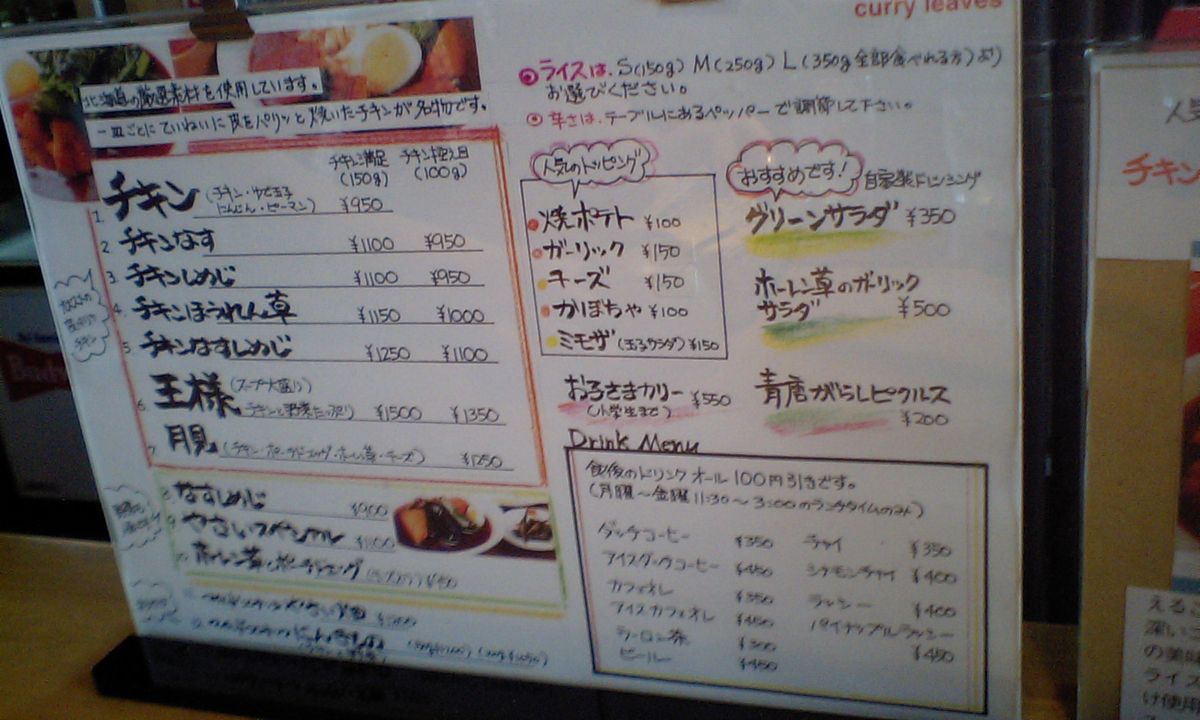 curry leaves
北海道の厳選素材を使用しています。
一皿ごとにていねいに皮をパリッと焼いたチキンが名物です。
チキン満足(150g) チキン控え目(100g)
1. チキン (チキン・ゆで玉子 にんじん・ピーマン) ¥950
2. チキンなす ¥1100 ¥950
3. チキンしめじ ¥1100 ¥950
4. チキンほうれん草 ¥1150 ¥1000
5. チキンなすしめじ ¥1250 ¥1100
6. 王様 (スープ大盛り) チキンと野菜たっぷり ¥1500 ¥1350
7. 月見 (チキン・ポーチドエッグ・ホーレン草・チーズ) ¥1250
8. なすしめじ ¥900
9. やさいスペシャル ¥1100
10. ホーレン草とポーチドエッグ
ライスは、S(150g) M(250g) L(350g全部食べれる方)より
お選びください。
辛さは、テーブルにあるペッパーで調節して下さい。
人気のトッピング
焼ポテト ¥100
ガーリック ¥150
チーズ ¥150
かぼちゃ ¥100
ミモザ (玉子サラダ) ¥150
おすすめです! 自家製ドレンシング
グリーンサラダ ¥350
ホーレン草のガーリック
サラダ ¥500
青唐がらしピクルス
¥200
お子さまカリー ¥550
(小学生まで)
Drink Menu
食後のドリンク オール100円引きです。
(月曜〜金曜 11:30〜3:00のランチタイムのみ)
ダッチコーヒー ¥350
アイスダッチコーヒー ¥450
カフェオレ ¥350
アイスカフェオレ ¥450
ウーロン茶 ¥300
ビール ¥450
チャイ ¥350
シナモンチャイ ¥400
ラッシー ¥400
パイナップルラッシー ¥450
チキン
深い
の美味
ライス
け使用